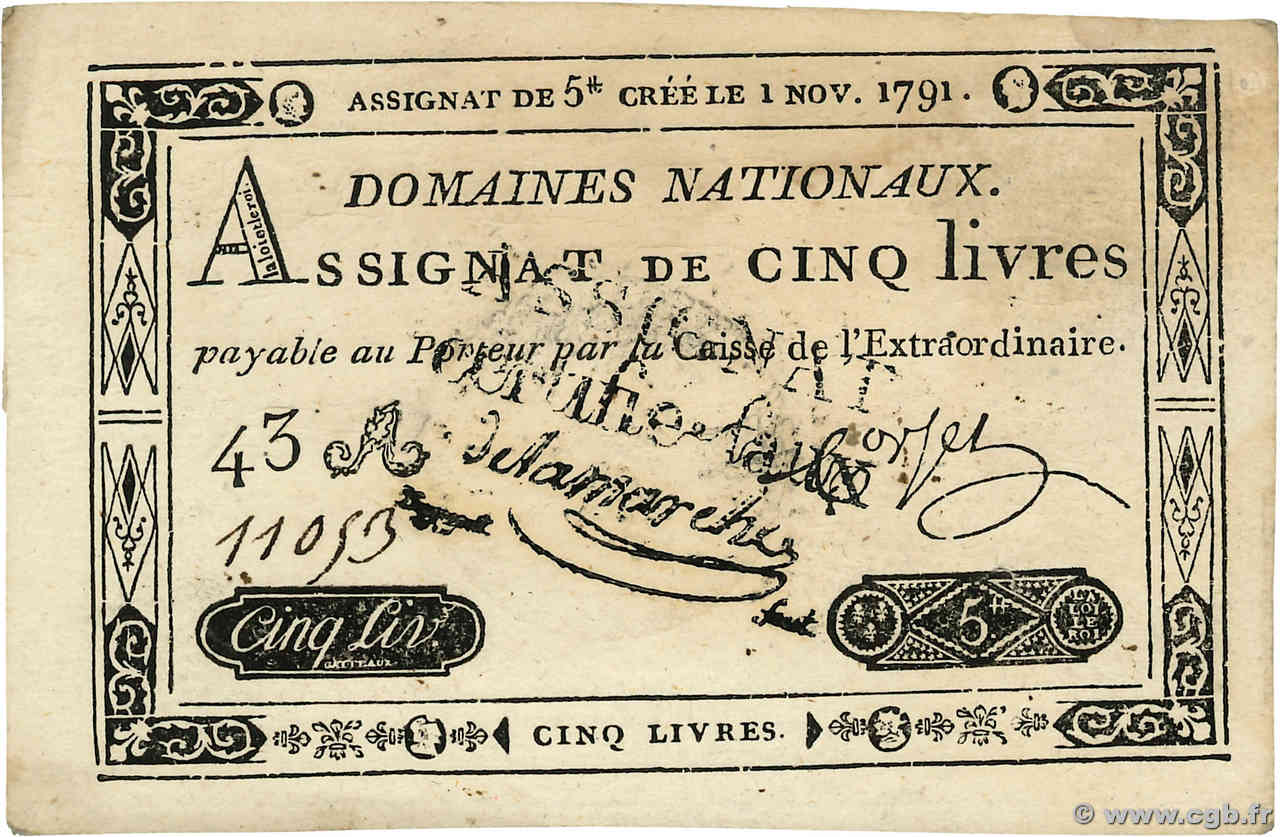 ASSIGNAT DE 5tt CRÉÉ LE 1 NOV. 1791.
DOMAINES NATIONAUX.
la loi et le roi.
ASSIGNAT DE CINQ livres
payable au Porteur par la Caisse de l'Extraordinaire.
ASSIGNAT
vérifié faux
43 A Corsel
delamarche
11053
Cinq Liv.
GATTEAUX
5tt
LA LOI LE ROI
CINQ LIVRES.
© www.cgb.fr